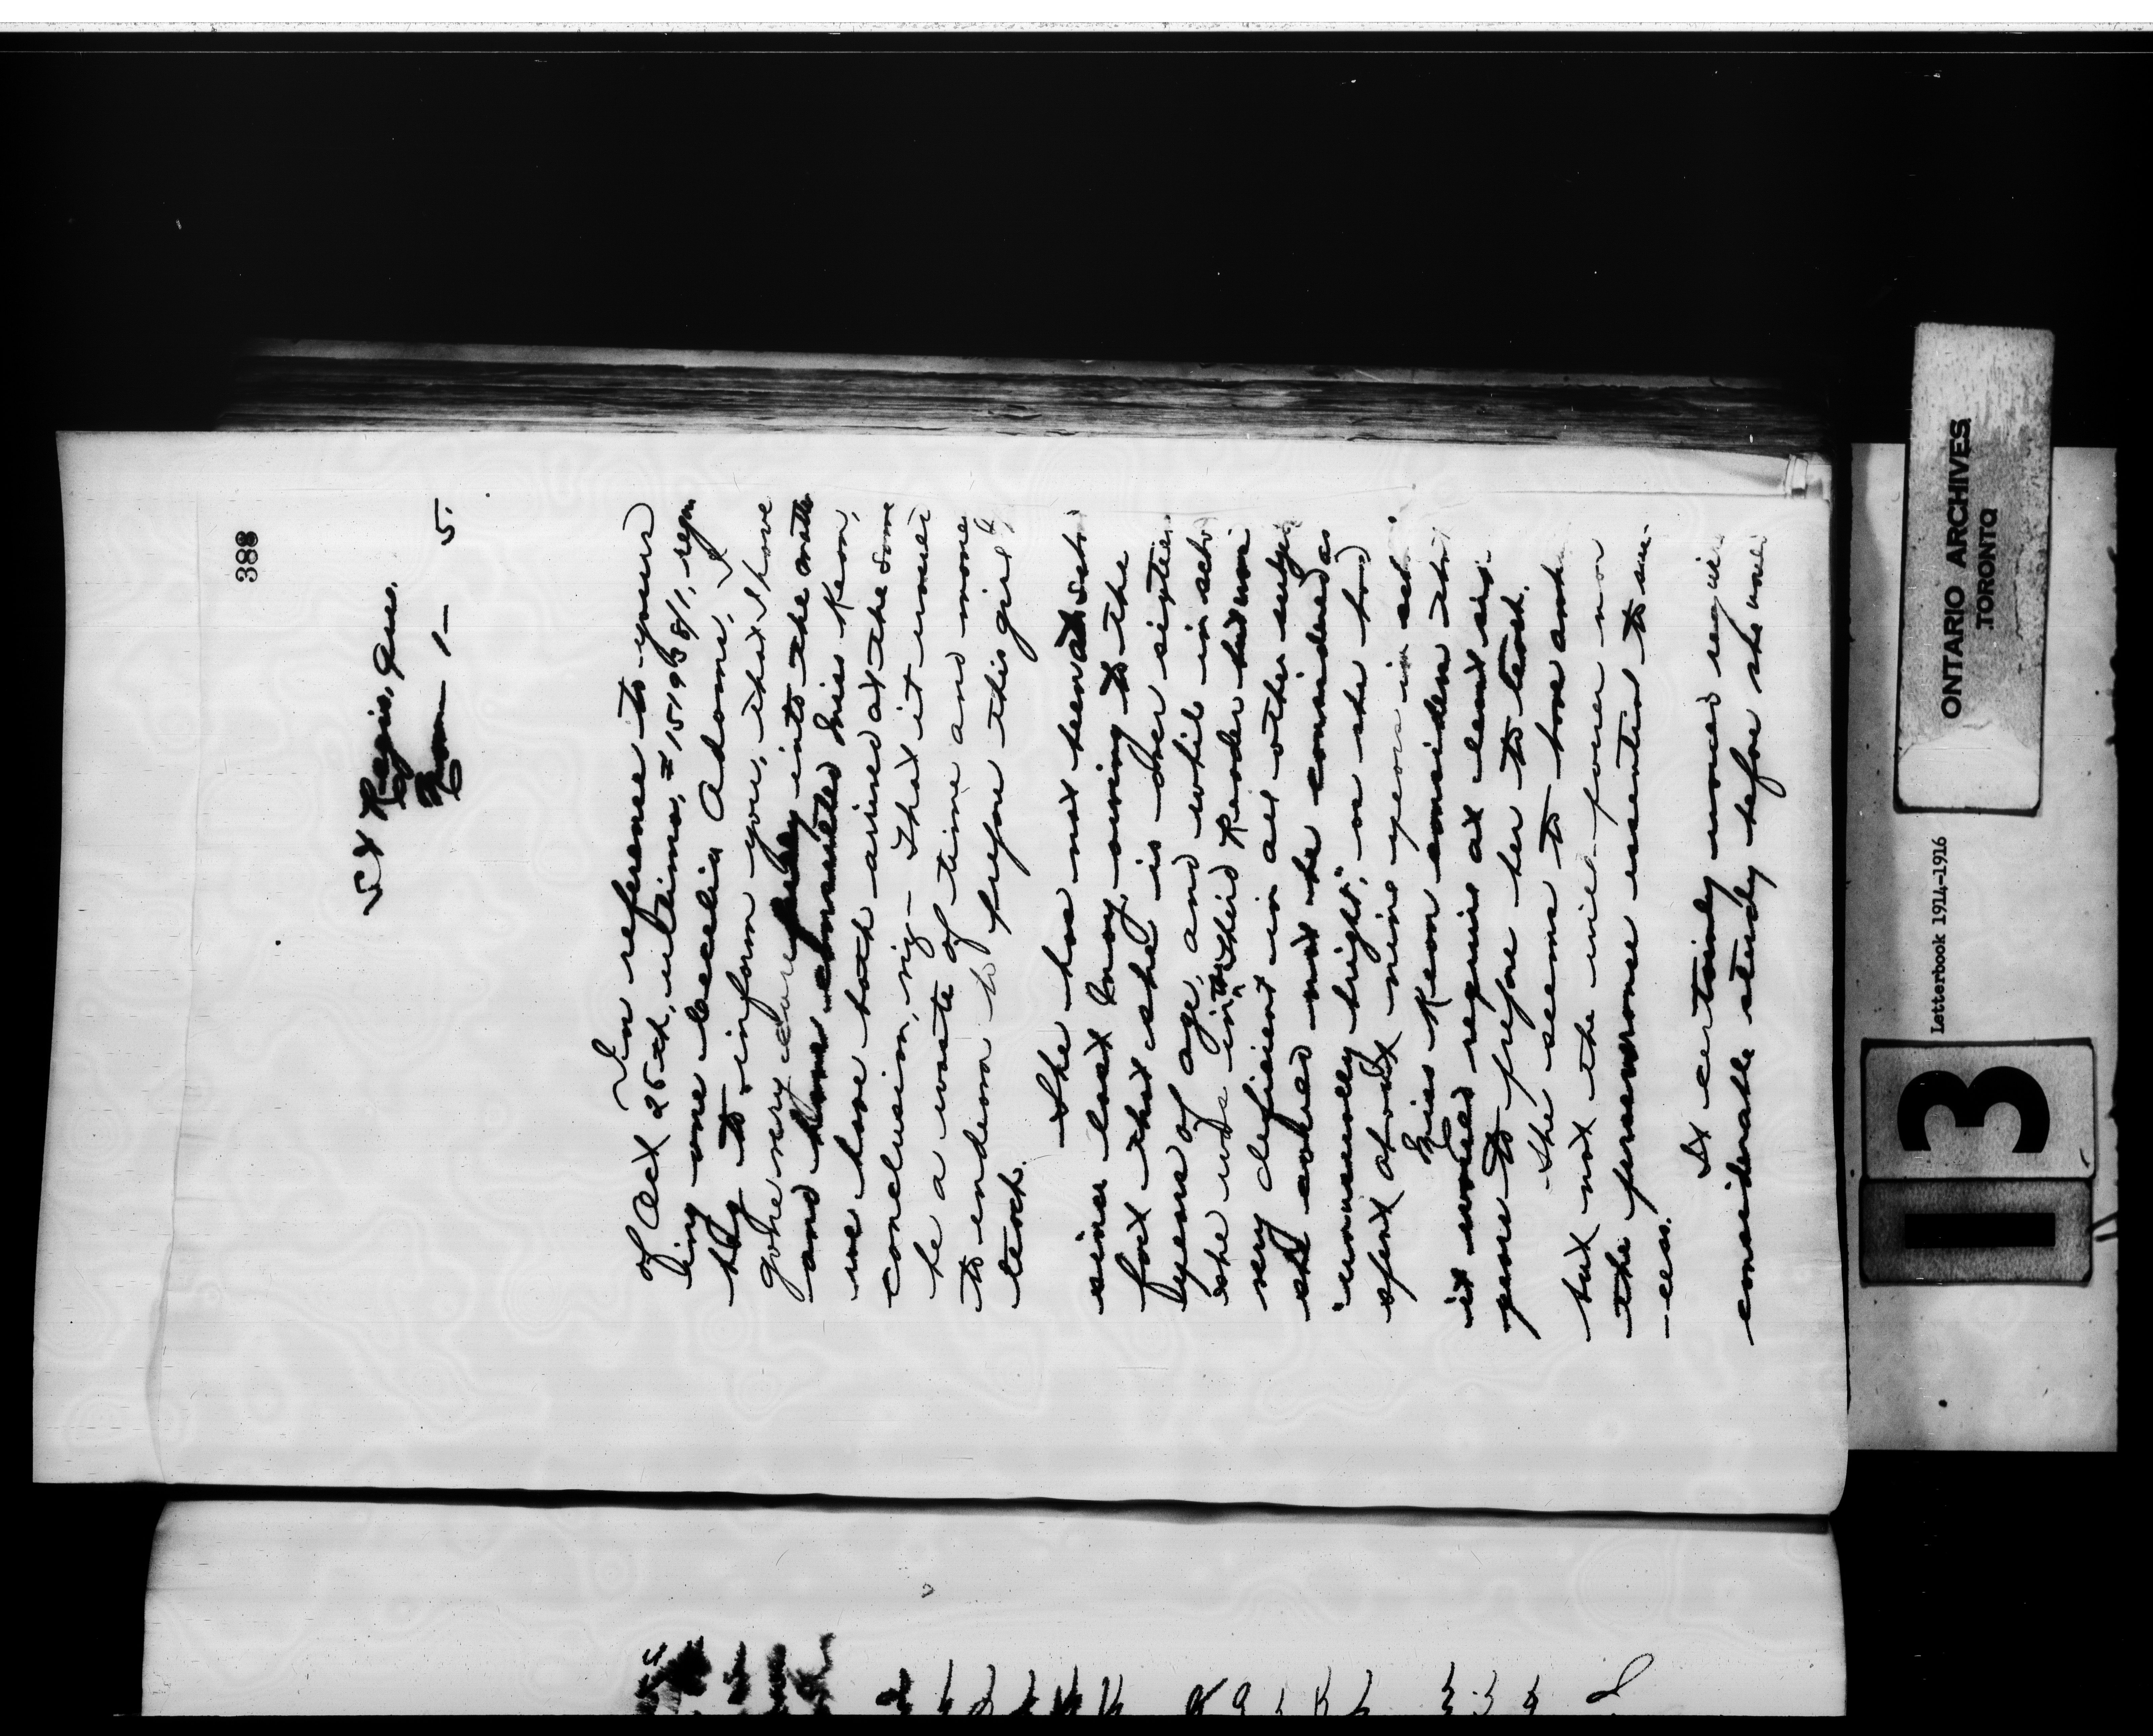 388
St Regis, Que.
Nov — 1 — 5.
In reference to yours
of Oct 25th, ultimo,
ing one Cecelia Adams, I
beg to inform you, that I have
gone very carefully into the matter
and have consulted Miss Keon,
we have both arrived at the same
conclusion, viz - That it would
be a waste of time and mone
to endeavor to prepare this girl
teach.
She has not been at scho
since last May, owing to the
fact that she is over sixteen
years of age, and while in scho
she was in the third Reader but was
very deficient in all other subje
she could not be considered as
"unusually bright", as she had
spent about nine years in sch
Miss Keon considers tha
it would require at least six
years to prepare her to teach.
She seems to have amb
but not the will power nor
the perseverance essential to suc-
-cess.
It certainly would require
considerable study before she would
ONTARIO ARCHIVES
TORONTO
Letterbook 1914-1916
113